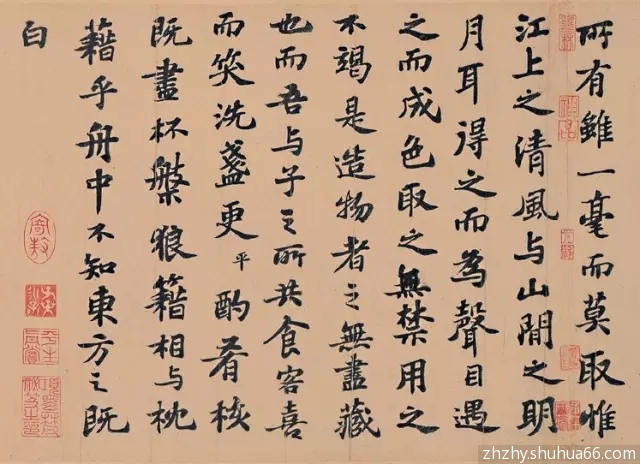 所有雖一毫而莫取惟
江上之清風与山間之明
月耳得之而為聲目遇
之而成色取之無禁用之
不竭是造物者之無盡藏
也而吾与子之所共食客喜
而笑洗盞更平酌肴核
既盡杯槃狼籍相与枕
藉乎舟中不知東方之既
白
zhzhy.shuhua66.com